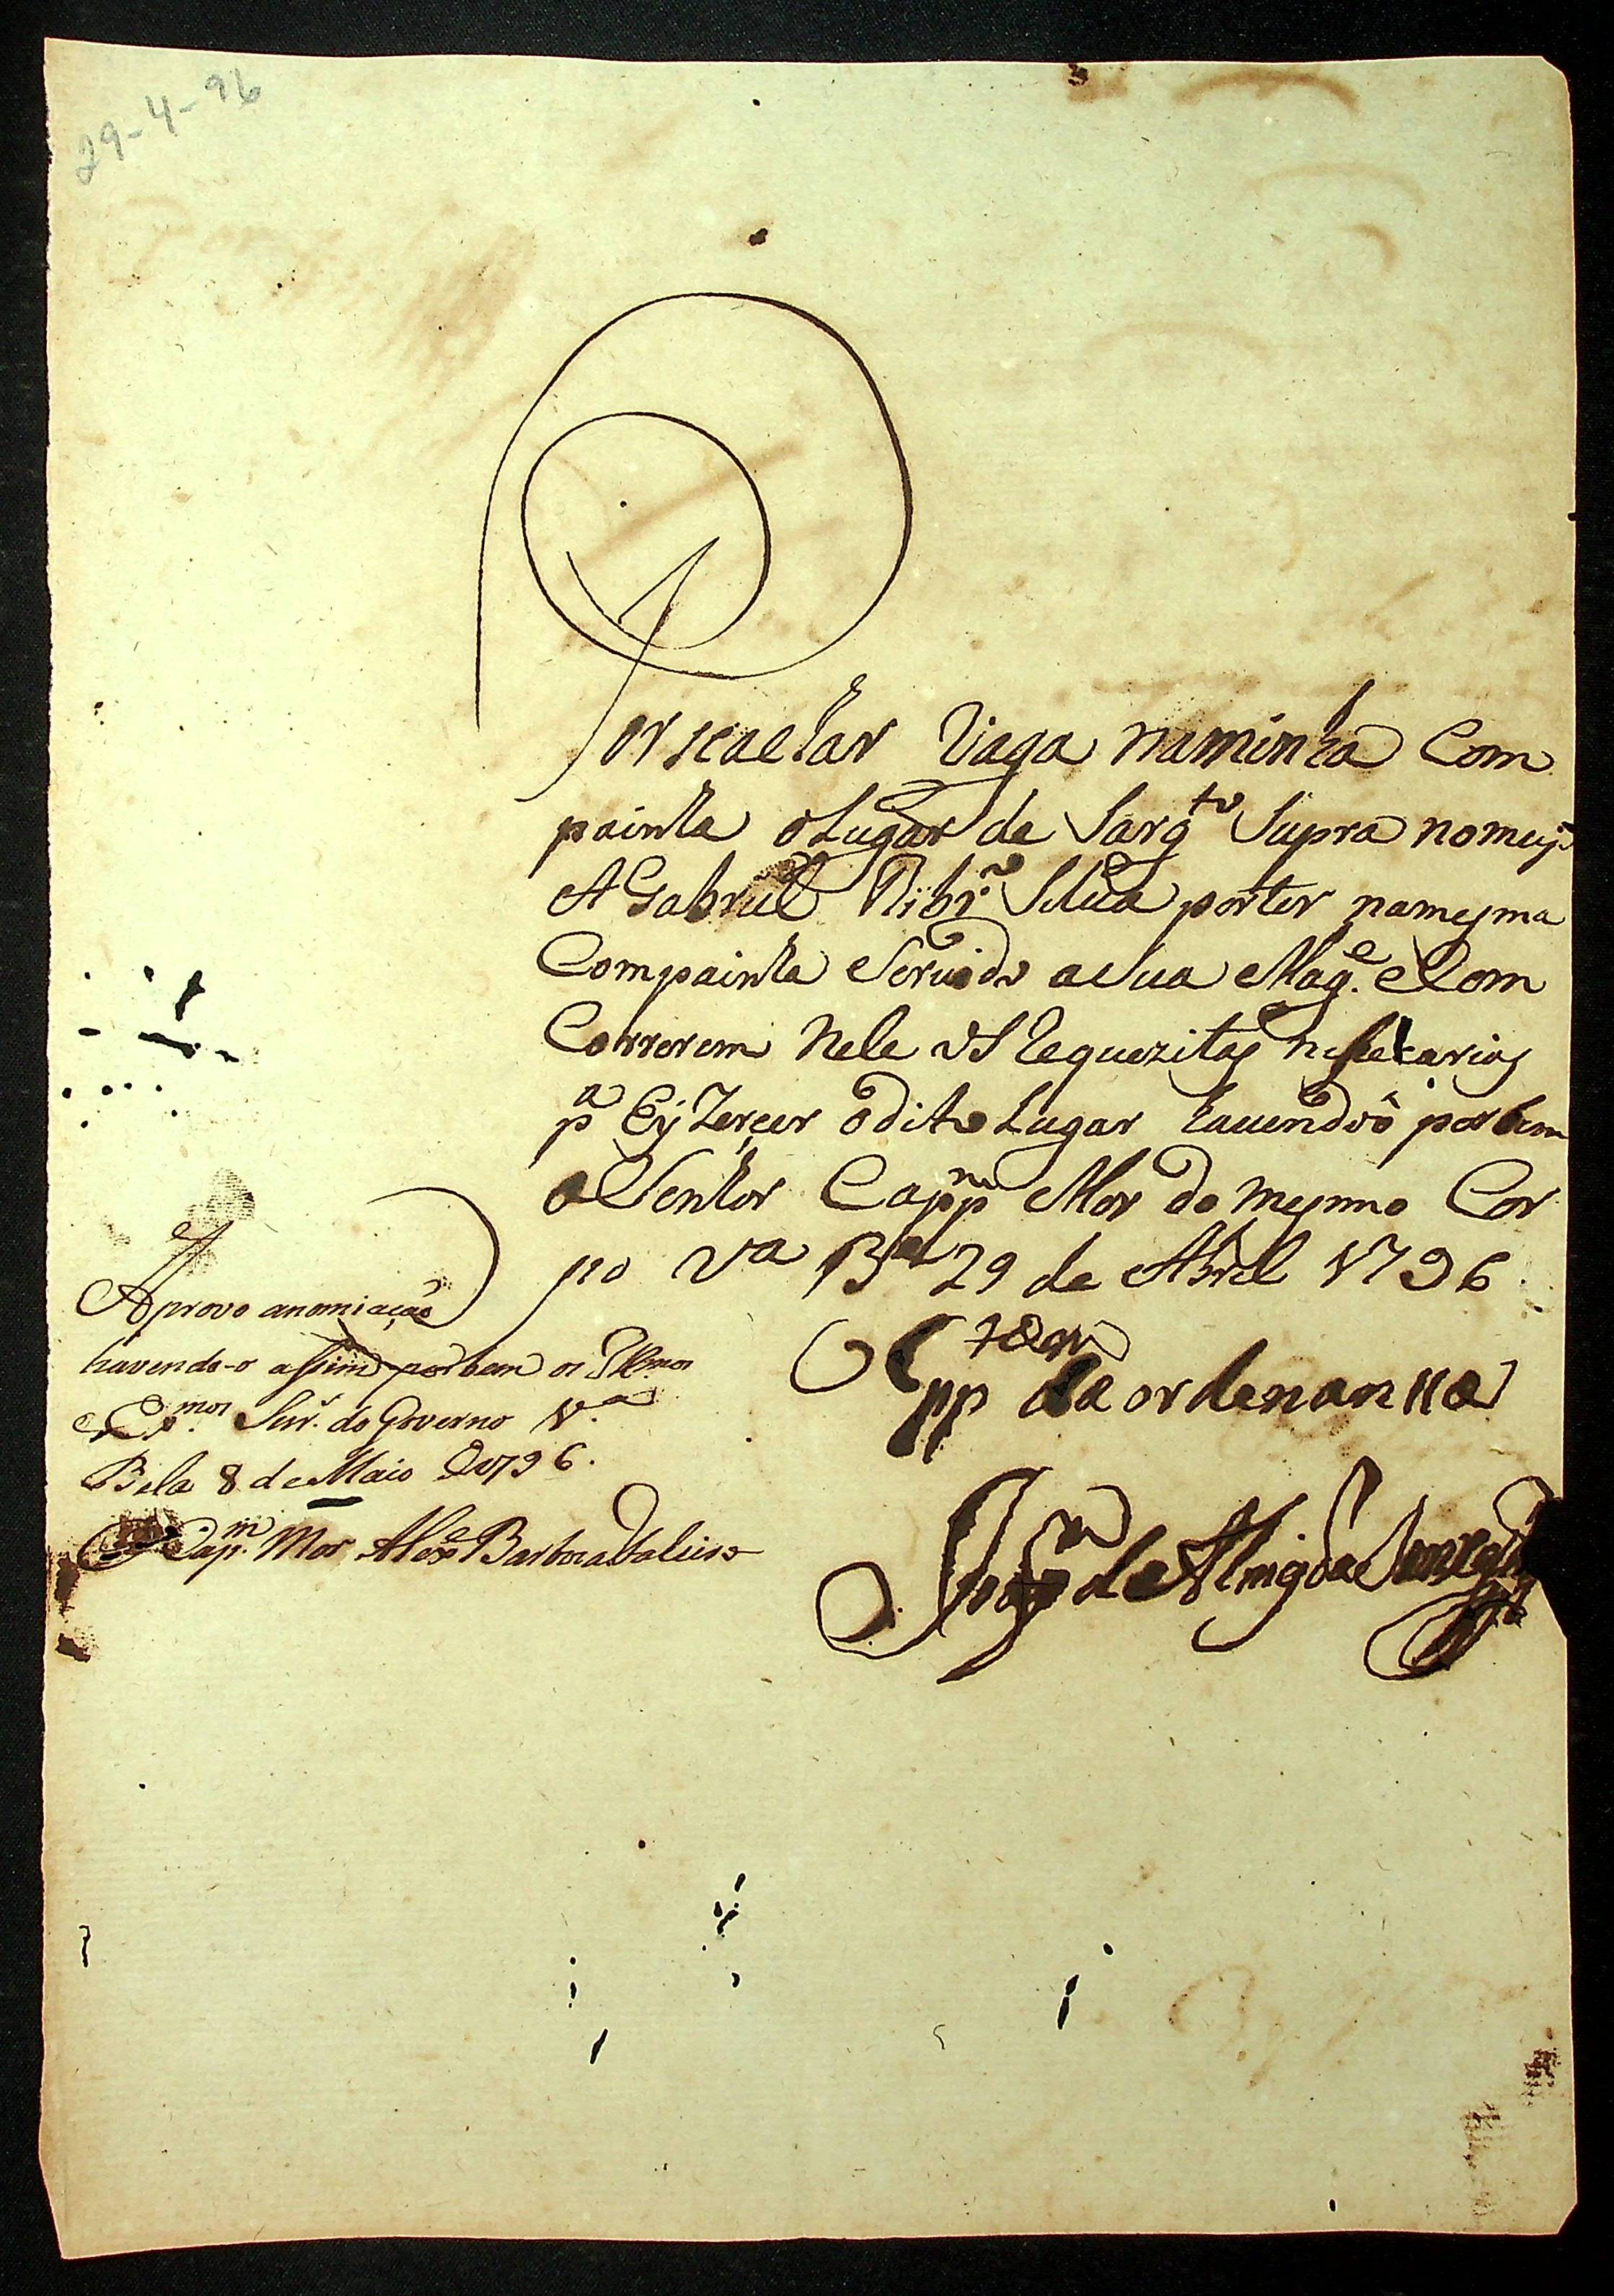 29-4-96
Por se achar Vaga na minha Com
painha o Lugar de Sargto Supra nomeyo
A Gabriel Ribro Silva por ter na mesma
Compainha Servido a Sua Mage e Com
Correrem Nele os Requezitos nesesarios
pa Eyzerçer o dito Lugar havendoo por bem
o Senhor Cappm Mor do mesmo Cor
po Va Ba 29 de Abril 1796.
da ordenanssa
de Almeida
Aprovo a nomiação
havendo-o assim por bem os Illmos
e Exmos Snr. do Governo Va
Bela 8 de Maio de 1796.
Capm Mor Alexe Barboza